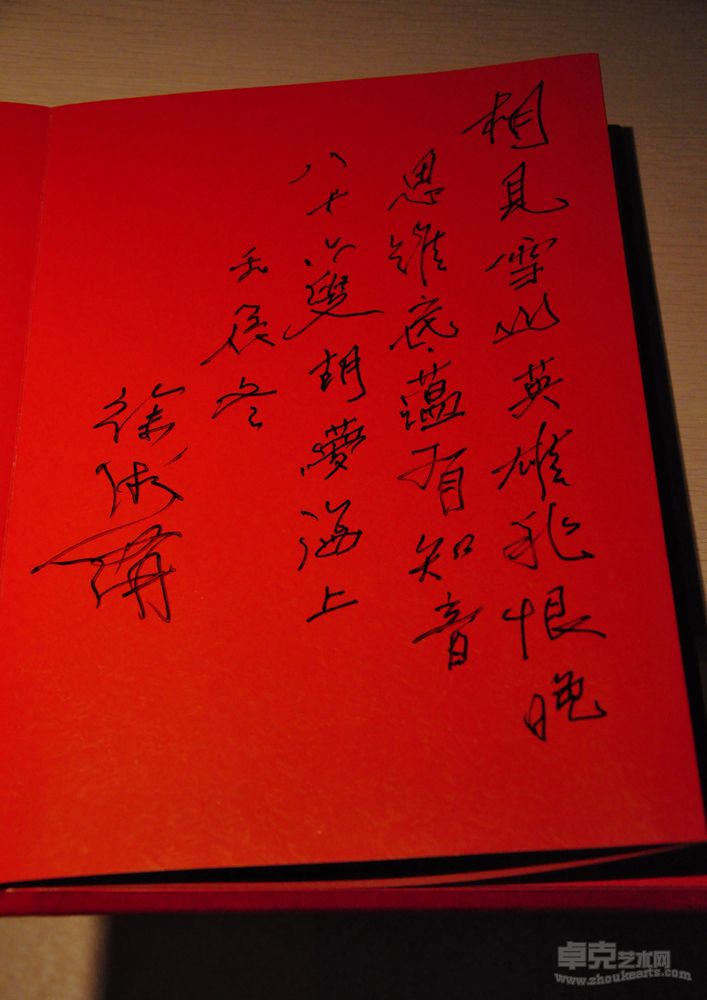 相見雪山英雄非恨晚
思維底蘊有知音
八十六叟胡夢海上
壬辰冬
徐
卓克艺术网
www.zhoukearts.com